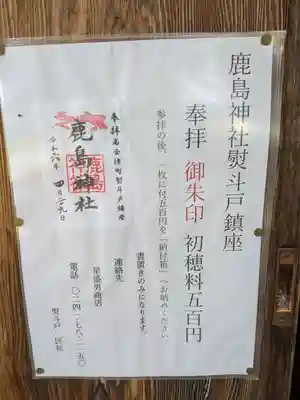 鹿島神社熨斗戸鎮座
奉拝 御朱印 初穂料五百円
参拝の後、一枚に付五百円を「納付箱」へお納めください
書置きのみになります。
連絡先
星盛男商店
電話 〇二四一-七八-二一五〇
熨斗戸 区長
奉拝 南会津町熨斗戸鎮座
鹿島神社
令和六年 四月二十九日